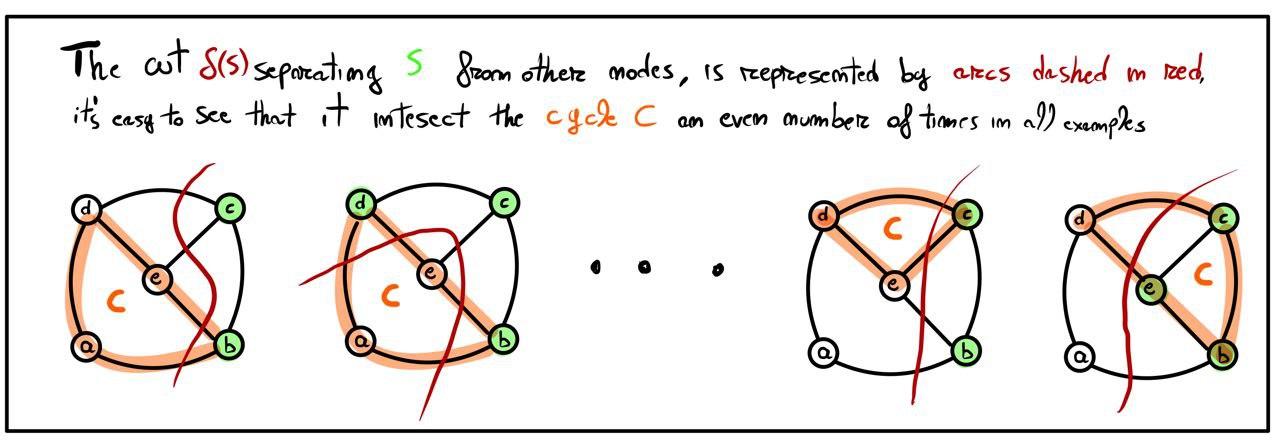 The cut δ(S) separating S from other nodes, is represented by arcs dashed in red,
it's easy to see that it intesect the cycle C an even number of times in all examples
d c e a b C
d c e a b C
• • •
d c e a b C
d c e a b C